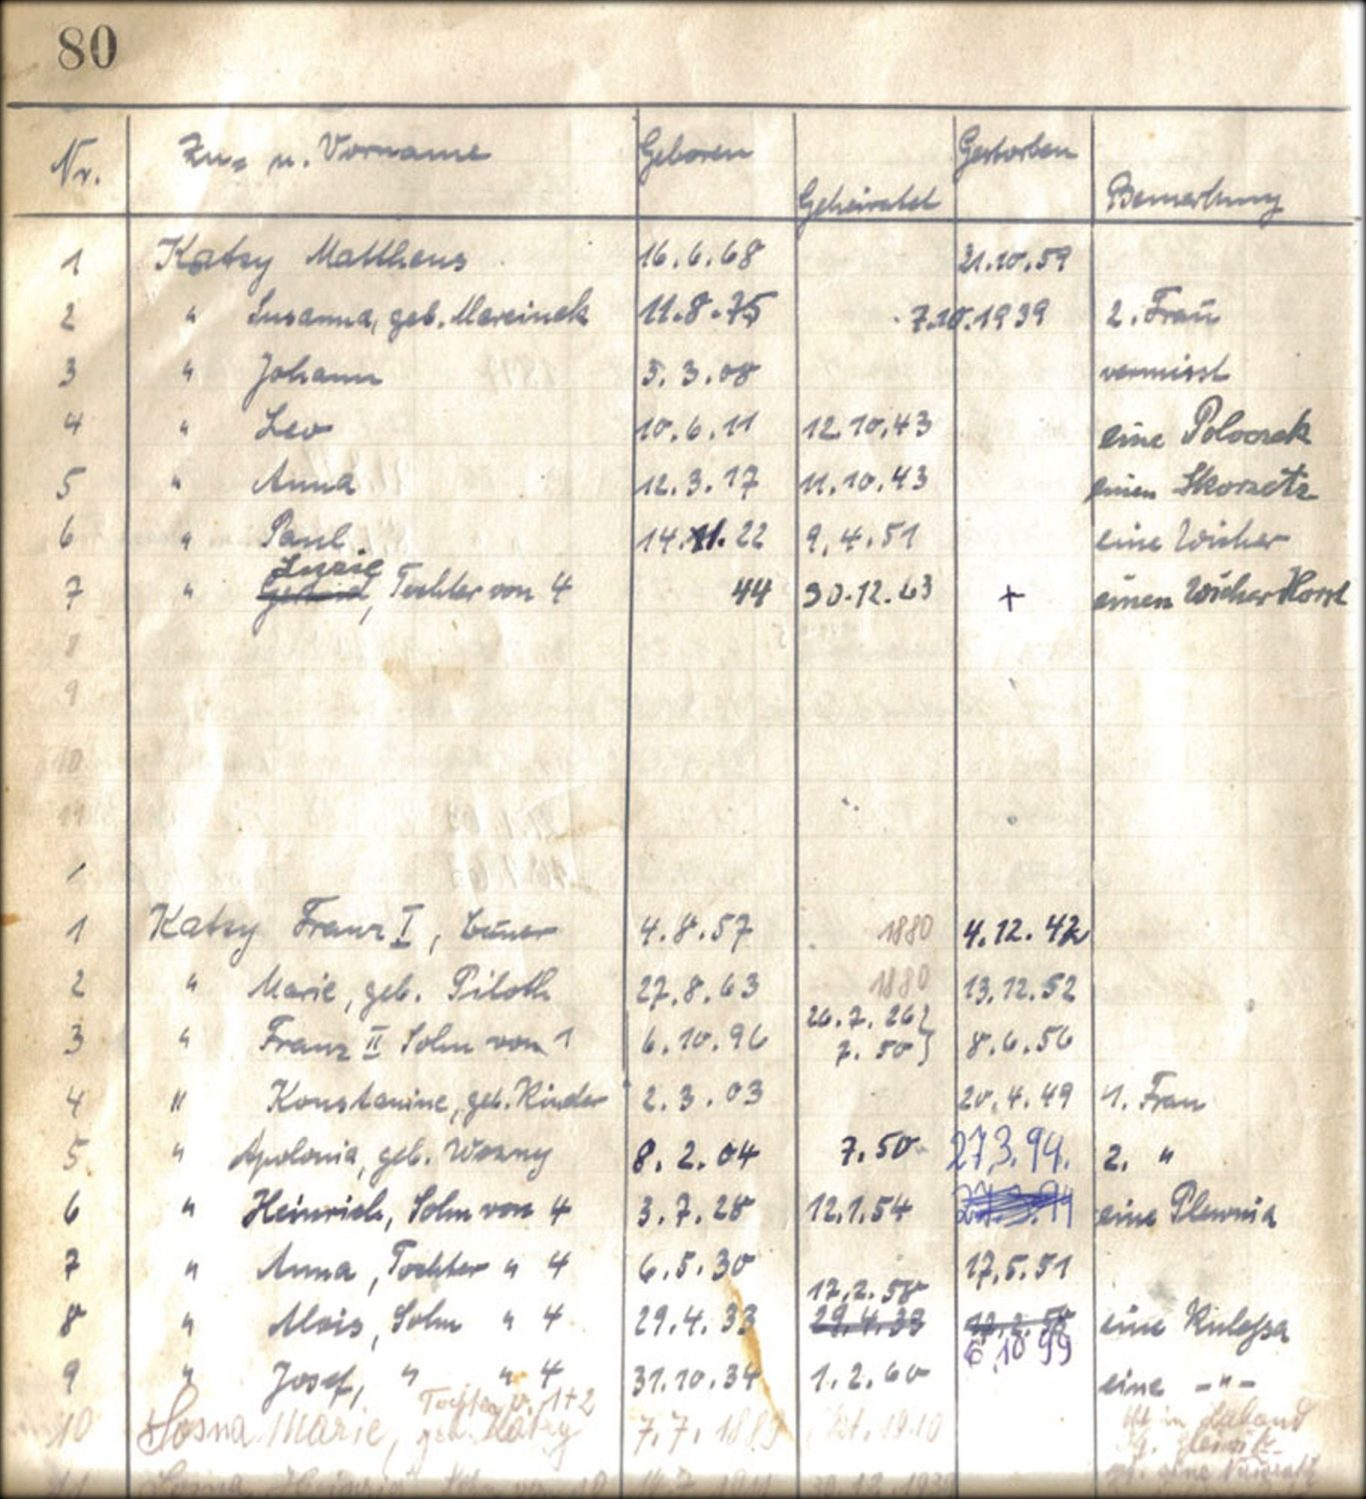 80
Nr. Zu- u. Vorname Geboren Geheiratet Gestorben Bemerkung
1 Katzy Mattheus 16.6.68 21.10.59
2 " Susanna, geb. Marcinek 11.8.75 7.10.1939 2. Frau
3 " Johann 3.3.08 vermisst
4 " Leo 10.6.11 12.10.43 eine Poloczek
5 " Anna 12.3.17 11.10.43 einen Skorzetz
6 " Paul 14.11.22 9.4.51 eine Wicher
Luzie
7 " Gertrud, Tochter von 4 44 30.12.63 + einen Wicher Horst
8
9
10
11
1
1 Katzy Franz I, 4.8.57 1880 4.12.42
2 " Marie, geb. Piloth 27.8.63 1880 13.12.52
3 " Franz II Sohn von 1 6.10.96 26.7.26} 8.6.56
7.50}
4 " Konstanine, geb. Kinder 2.3.03 20.4.49 1. Frau
5. " Apolonia, geb. Wozny 8.2.04 7.50 27.3.94. 2. "
6 " Heinrich, Sohn von 4 3.7.28 12.1.54 eine Plewnia
7 " Anna, Tochter " 4 6.5.30 17.5.51
17.2.58
8 " Alois, Sohn " 4 29.4.33 29.4.33 17.2.58 eine Kulessa
6.10 99
9 " Josef, " " 4 31.10.34 1.2.60 eine -"-
Tochter v. 1+2
10 Sosna Marie, geb. Katzy 7.7.1889 1910 in Laband
11 Sosna von 10